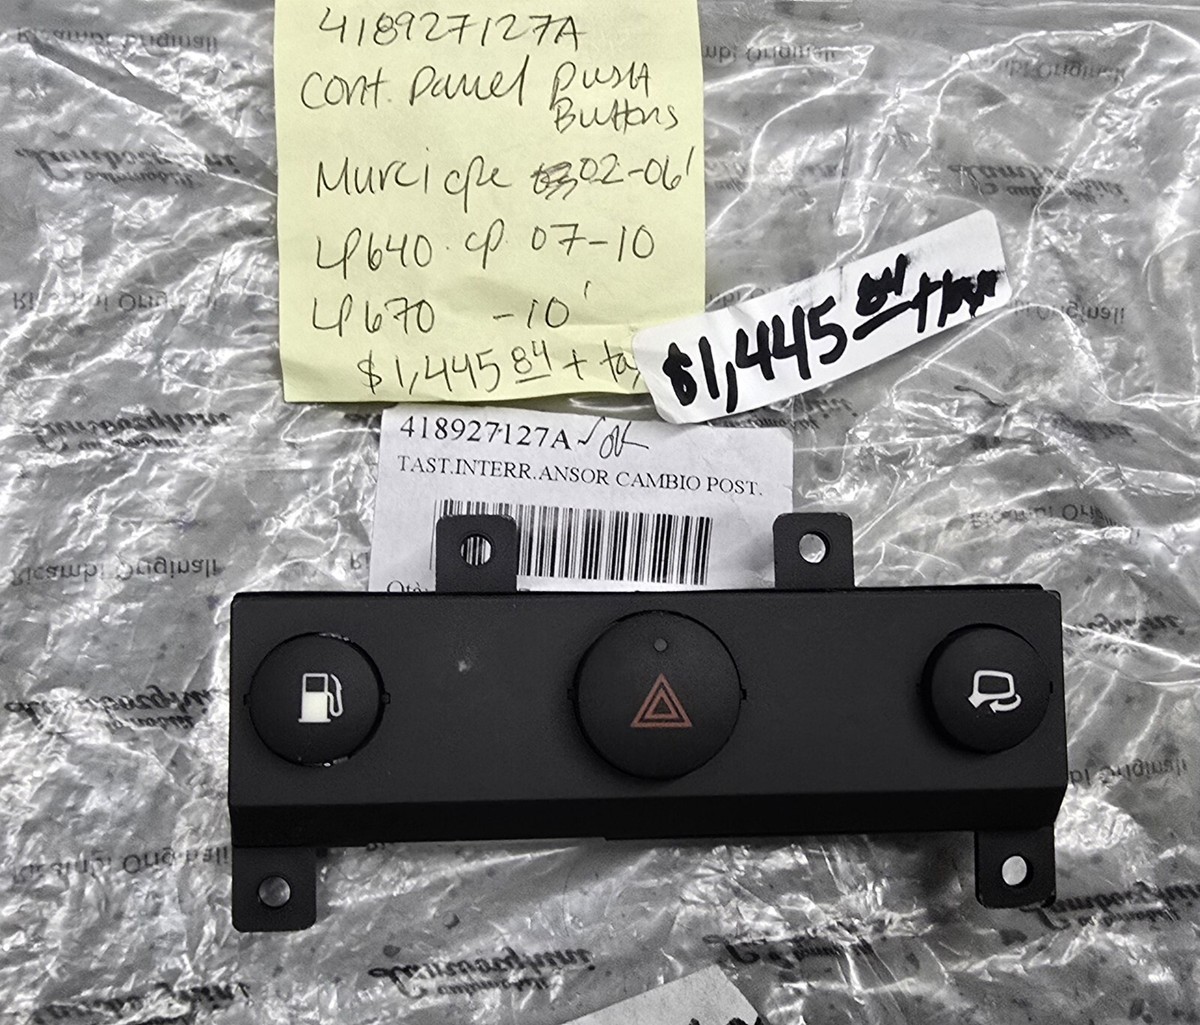 418927127A
Cont. Panel Push
Buttons
Murci cpe 02-06'
LP640 cp 07-10
LP670 -10'
$1,445 84 + tax
$1,445 84 + tax
418927127A ok
TAST.INTERR.ANSOR CAMBIO POST.
Ricambi Originali
Lamborghini
automobili